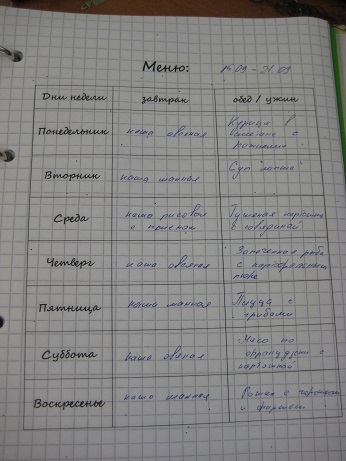 Меню: 15.09 - 21.09
Дни недели завтрак обед / ужин
Понедельник каша овсяная Курица в
с
Вторник каша манная Суп "лапша"
Среда каша рисовая Тушеная картошка
с с говядиной
Четверг каша овсяная Запеченная рыба
с картофельным
пюре
Пятница каша манная Пицца с
грибами
Суббота каша овяная Мясо по
французски с
картошкой
Воскресенье каша манная
и фаршем